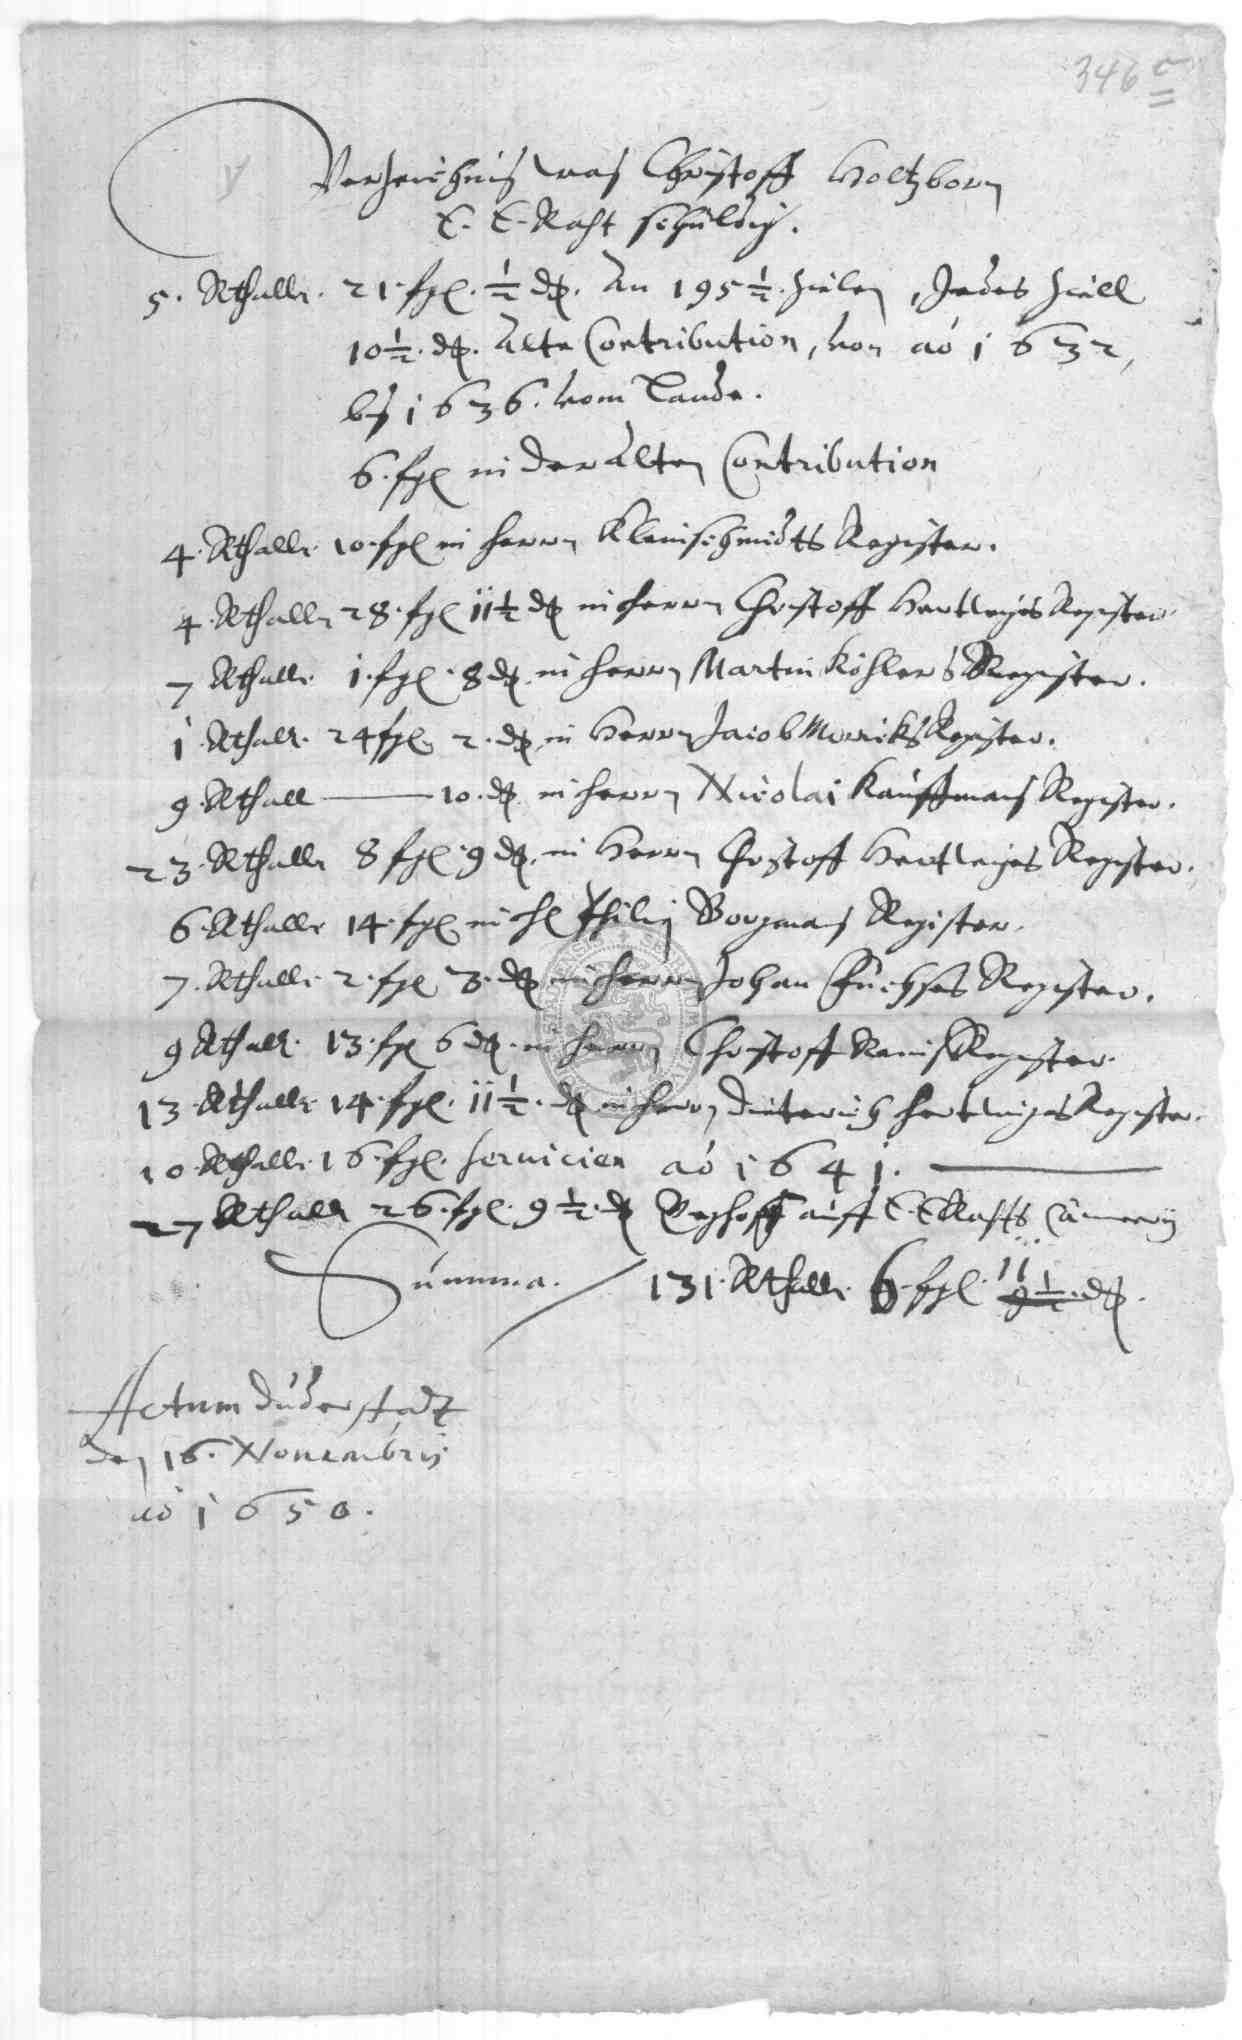 346 c
Verzeichnis was Christoff Holtzborn
E. E. Raht schuldig.
5. Rthallr. 21. ßgl. ½ d. An 195½. zielen, Jedes ziell
10½. d. Alte Contribution, von aö 1632,
biß 1636. vom Lande.
6. ßgl in der Alten Contribution
4. Rthallr. 10. ßgl in herrn Kleinschmidts Register.
4. Rthallr 28. ßgl 11½ d in herrn Christoff Hertwiges Register.
7 Rthallr. 1. ßgl. 8 d. in herrn Martin Köhlers Register.
1 Rthallr. 24 ßgl. 2. d. in Herrn Jacob Register.
9. Rthall ——— 10. d. in herrn Nicolai Kauffmans Register.
23. Rthallr 8 ßgl. 9 d. in Herrn Christoff Hertwiges Register.
6. Rthallr 14. ßgl. in H Philip Borgmans Register.
7. Rthallr. 2. ßgl 3. d. in herrn Johan Fuchses Register.
9 Rthallr. 13. ßgl 6 d. in herrn Christoff Register.
13. Rthallr. 14. ßgl. 11½. d in herrn Dieterich hertwiges Register.
10. Rthallr. 16. ßgl. Servicien aö 1641. ———
27 Rthallr 26. ßgl. 9½. d auff E. E. Rahts Cämmerij
Summa. 131. Rthallr. 6. ßgl. 11 9½. d.
Actum Duderstadt
den 16. Novembris
aö 1650.